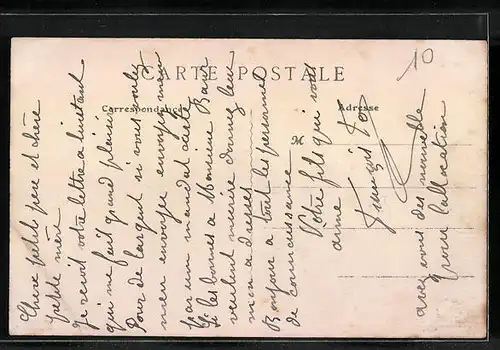 10
CARTE POSTALE
Correspondance
Adresse
Chere petits pere et chère
petite mère
Je recoit votre lettre a linstant
qui me fait grand plaisir
Pour de largent si vous voulez
men envoyer envoyer mien
par un mandat carte
Si les bornes a Monsieur Baur
veulent mecrire donnez leur
mon adresse
Bonjour a tout les personnes
de connaissance
Votre fils qui vous
aime
François
avez vous des nouvelle
pour lallocation